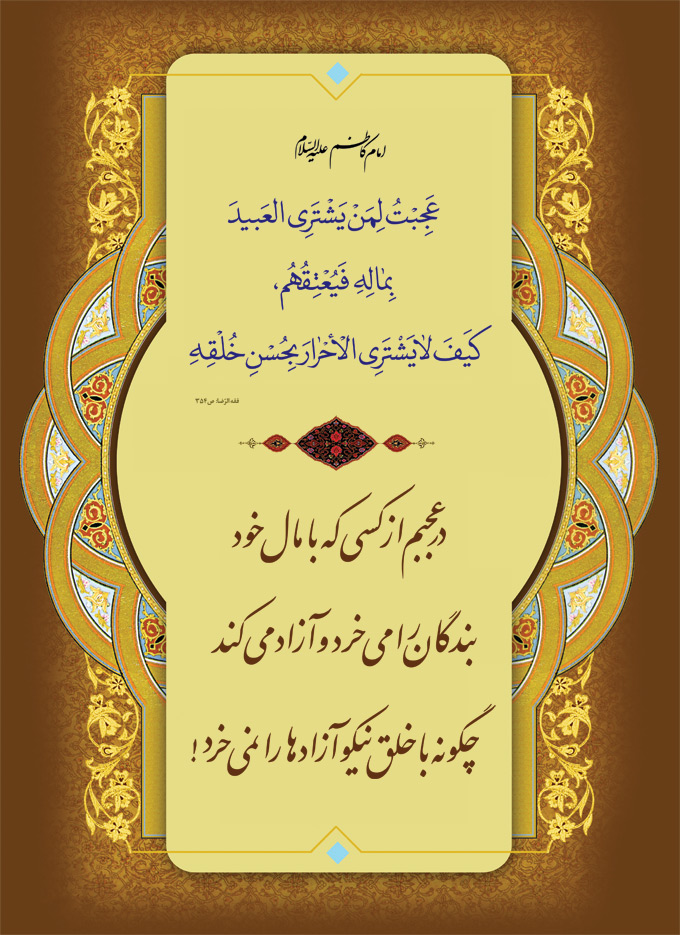 امام کاظم علیه السّلام
عَجِبْتُ لِمَنْ یَشْتَرِی العَبیدَ
بِمٰالِهِ فَیُعْتِقُهُم،
کَیَفَ لاٰیَشْتَرِی الْأحْرٰارَ بِحُسْنِ خُلْقِهِ
فقه الرّضا: ص ۳۵۴
در عجبم از کسی که با مال خود
بندگان را می خرد و آزاد می کند
چگونه با خلق نیکو آزادها را نمی خرد!